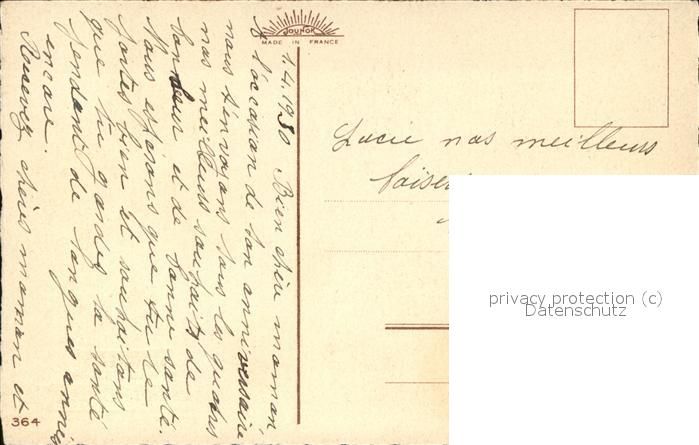 1.4.1930 Bien chère maman,
à l'occasion de ton anniversaire
nous t'envoyons tous les quatres
nos meilleurs souhaits de
bonheur et de bonne santé.
Nous espérons que tu te
portes bien et souhaitons
que tu gardes ta santé
pendant de longues années
encore.
Recevez chères maman et
Lucie nos meilleurs
baisers
JOUNOK
MADE IN FRANCE
364
privacy protection (c)
Datenschutz